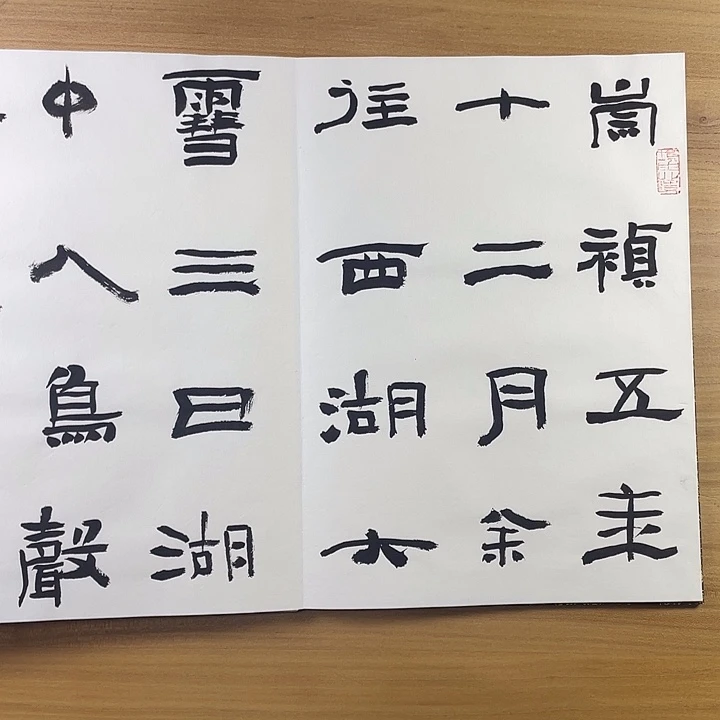 崇禎五年
十二月余
往西湖大
雪三日湖
中人鳥聲